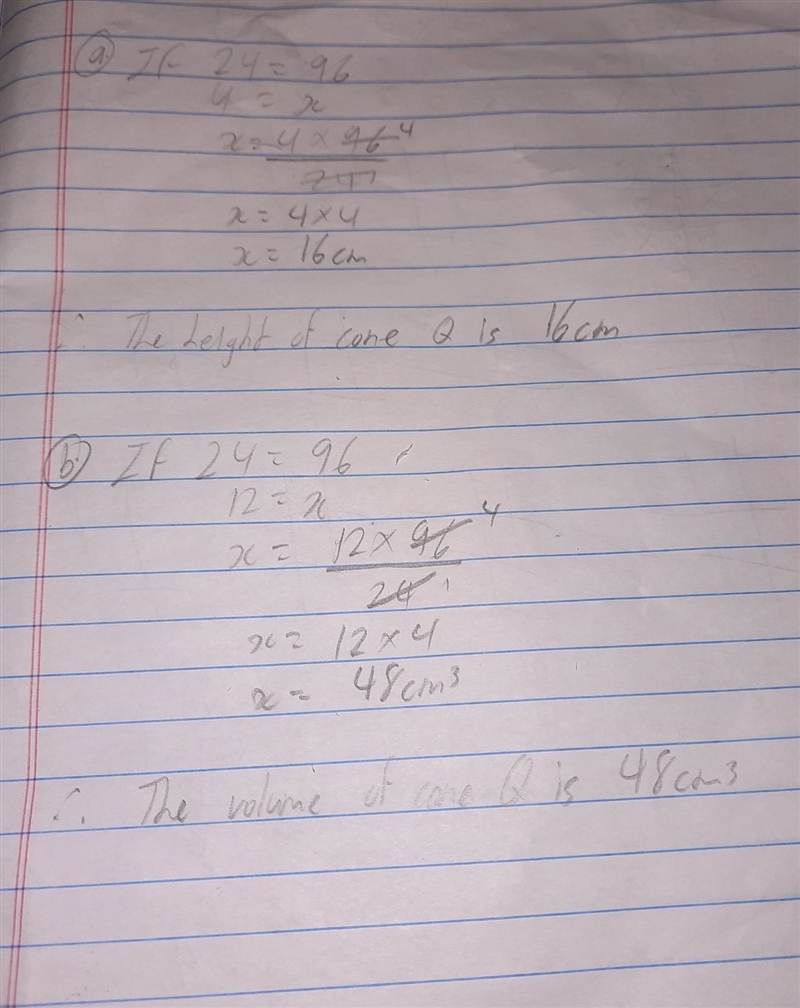 (a) If 24 = 96
4 = x
x = 4 × 96 4
24 1
x = 4 × 4
x = 16cm
∴ The height of cone Q is 16cm
(b) If 24 = 96
12 = x
x = 12 × 96 4
24 1
x = 12 × 4
x = 48cm³
∴ The volume of cone Q is 48cm³